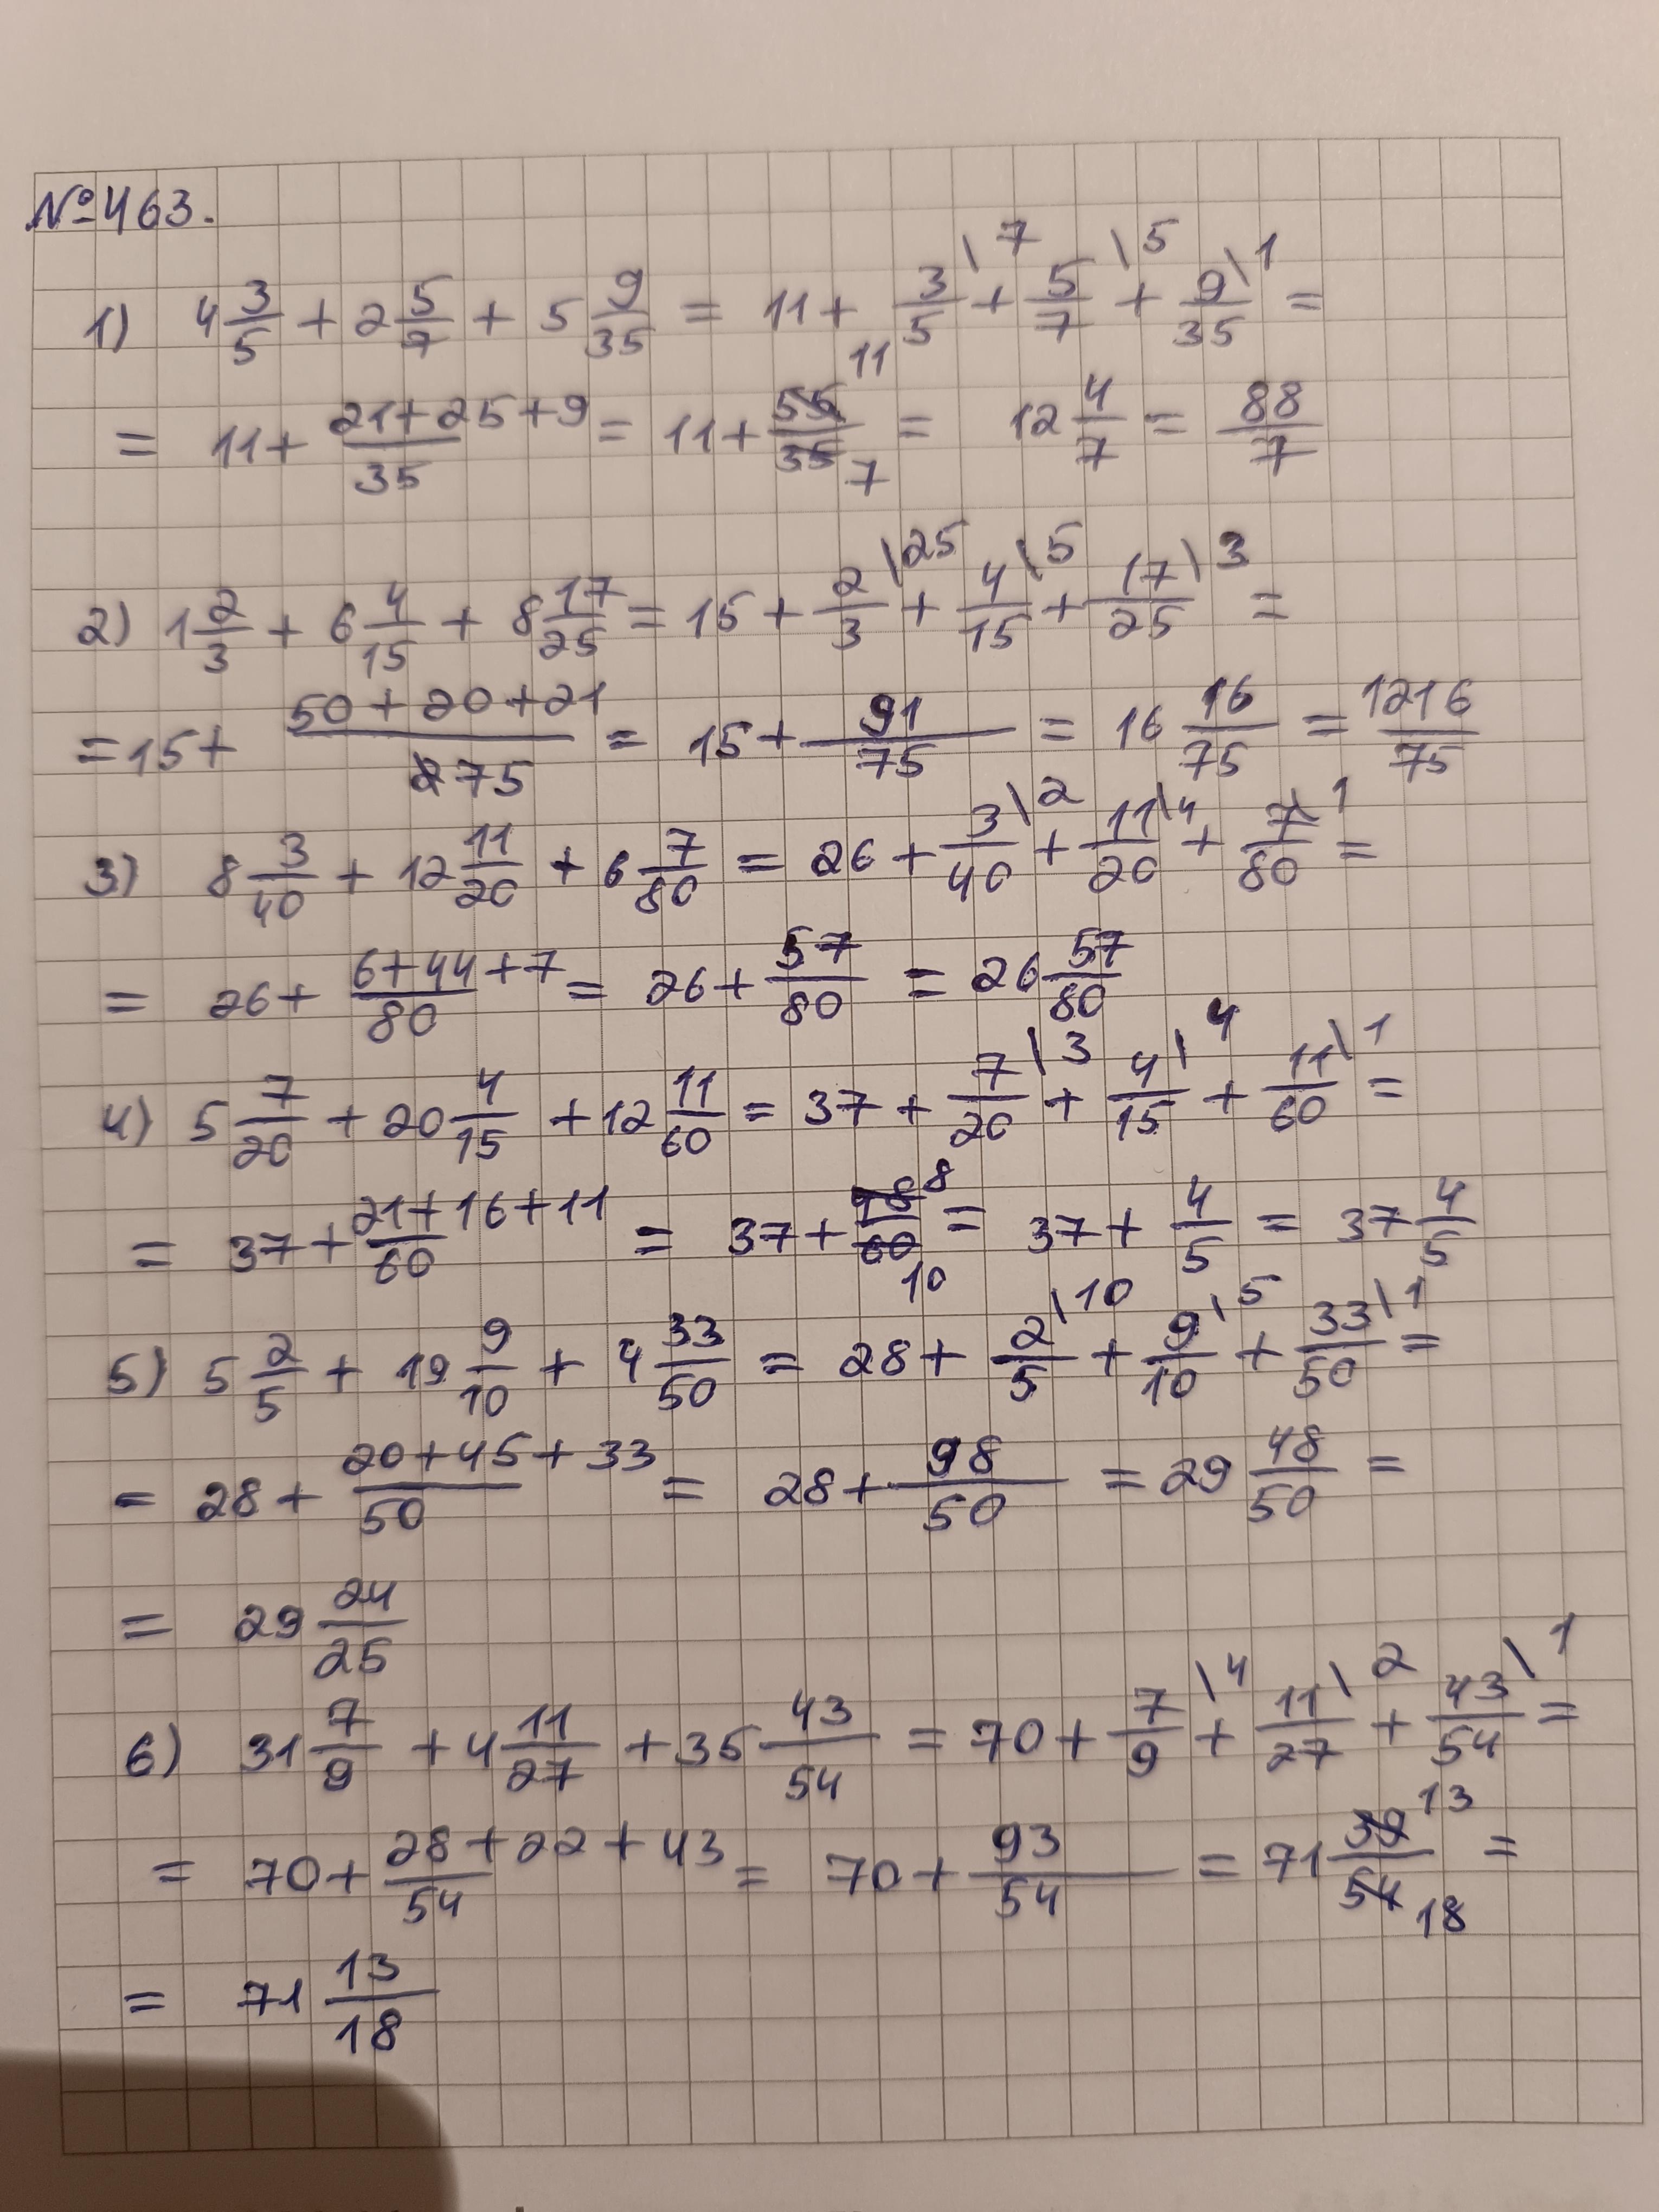 №463.
1) 4 3/5 + 2 5/7 + 5 9/35 = 11 + 3/5\7 + 5/7\5 + 9/35\1 =
= 11 + (21+25+9)/35 = 11 + 55/35 11/7 = 12 4/7 = 88/7
2) 1 2/3 + 6 4/15 + 8 17/25 = 15 + 2/3\25 + 4/15\5 + 17/25\3 =
= 15 + (50+20+21)/75 = 15 + 91/75 = 16 16/75 = 1216/75
3) 8 3/40 + 12 11/20 + 6 7/80 = 26 + 3/40\2 + 11/20\4 + 7/80\1 =
= 26 + (6+44+7)/80 = 26 + 57/80 = 26 57/80
4) 5 7/20 + 20 4/15 + 12 11/60 = 37 + 7/20\3 + 4/15\4 + 11/60\1 =
= 37 + (21+16+11)/60 = 37 + 48/60 8/10 = 37 + 4/5 = 37 4/5
5) 5 2/5 + 19 9/10 + 4 33/50 = 28 + 2/5\10 + 9/10\5 + 33/50\1 =
= 28 + (20+45+33)/50 = 28 + 98/50 = 29 48/50 =
= 29 24/25
6) 31 7/9 + 4 11/27 + 35 43/54 = 70 + 7/9\4 + 11/27\2 + 43/54\1 =
= 70 + (28+22+43)/54 = 70 + 93/54 = 71 39/54 13/18 =
= 71 13/18